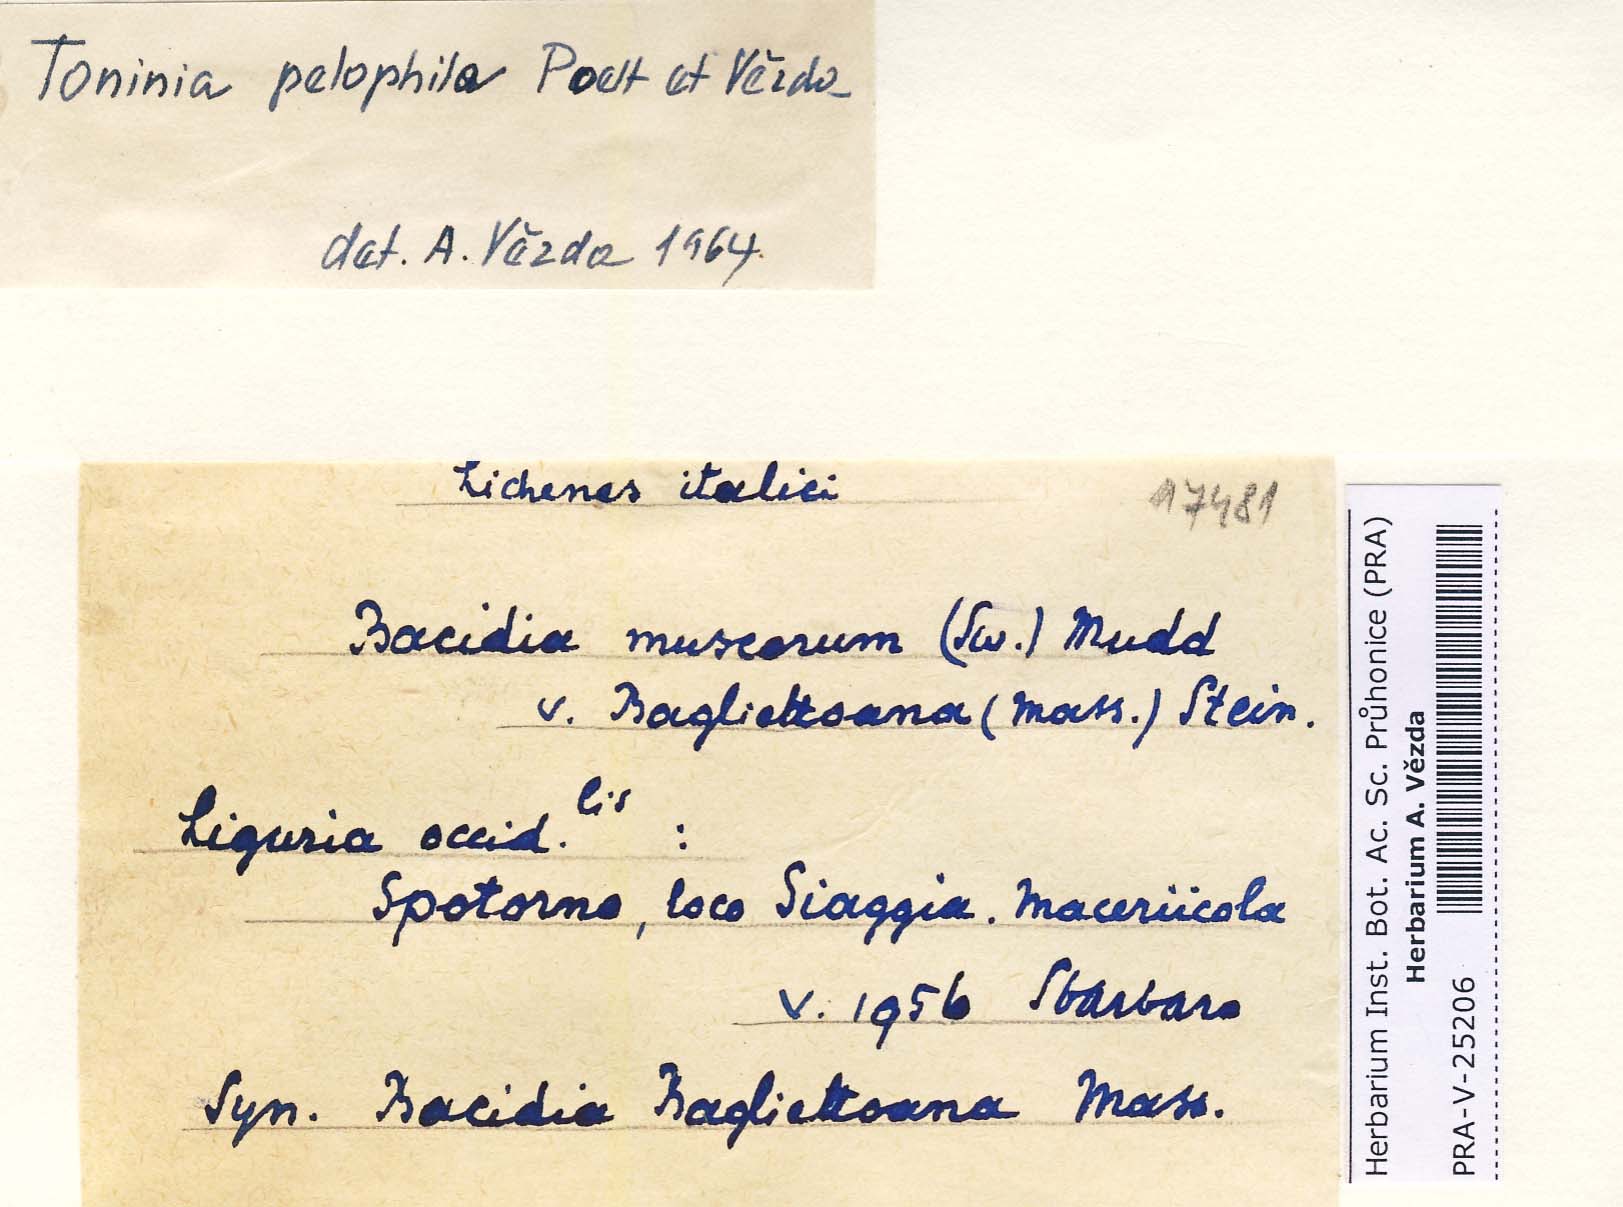 Toninia pelophila Poelt et Vězda
det. A. Vězda 1964.
Lichenes italici
17481
Bacidia muscorum (Sw.) Mudd
v. Bagliettoana (Mass.) Stein.
Liguria occid. lis :
Spotorno, loco Siaggia. Maceriicola
V. 1956 Sbarbaro
Syn. Bacidia Bagliettoana Mass.
Herbarium Inst. Bot. Ac. Sc. Průhonice (PRA)
Herbarium A. Vězda
PRA-V-25206